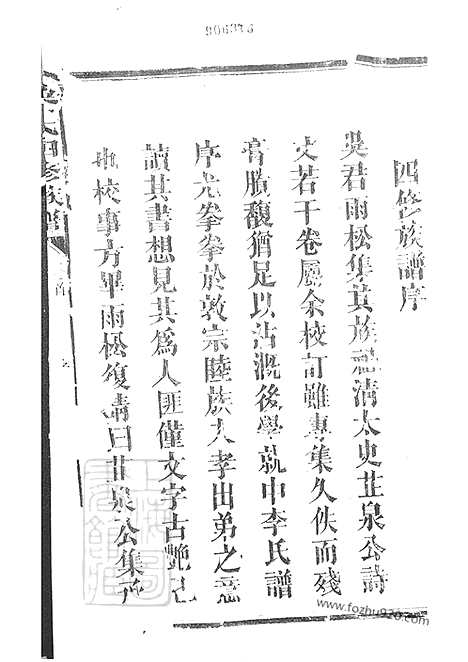 906376
四修族譜序
吳君雨松集其族祖清太史芷泉公詩
文若干卷屬余校訂雖專集久佚而殘
膏賸馥猶足以沾溉後學就中李氏譜
序尤拳拳於敦宗睦族入孝出弟之意
讀其書想見其為人匪僅文字古艷已
也校事方畢雨松復請曰芷泉公集
氏四修族譜
www.fozhu920.com